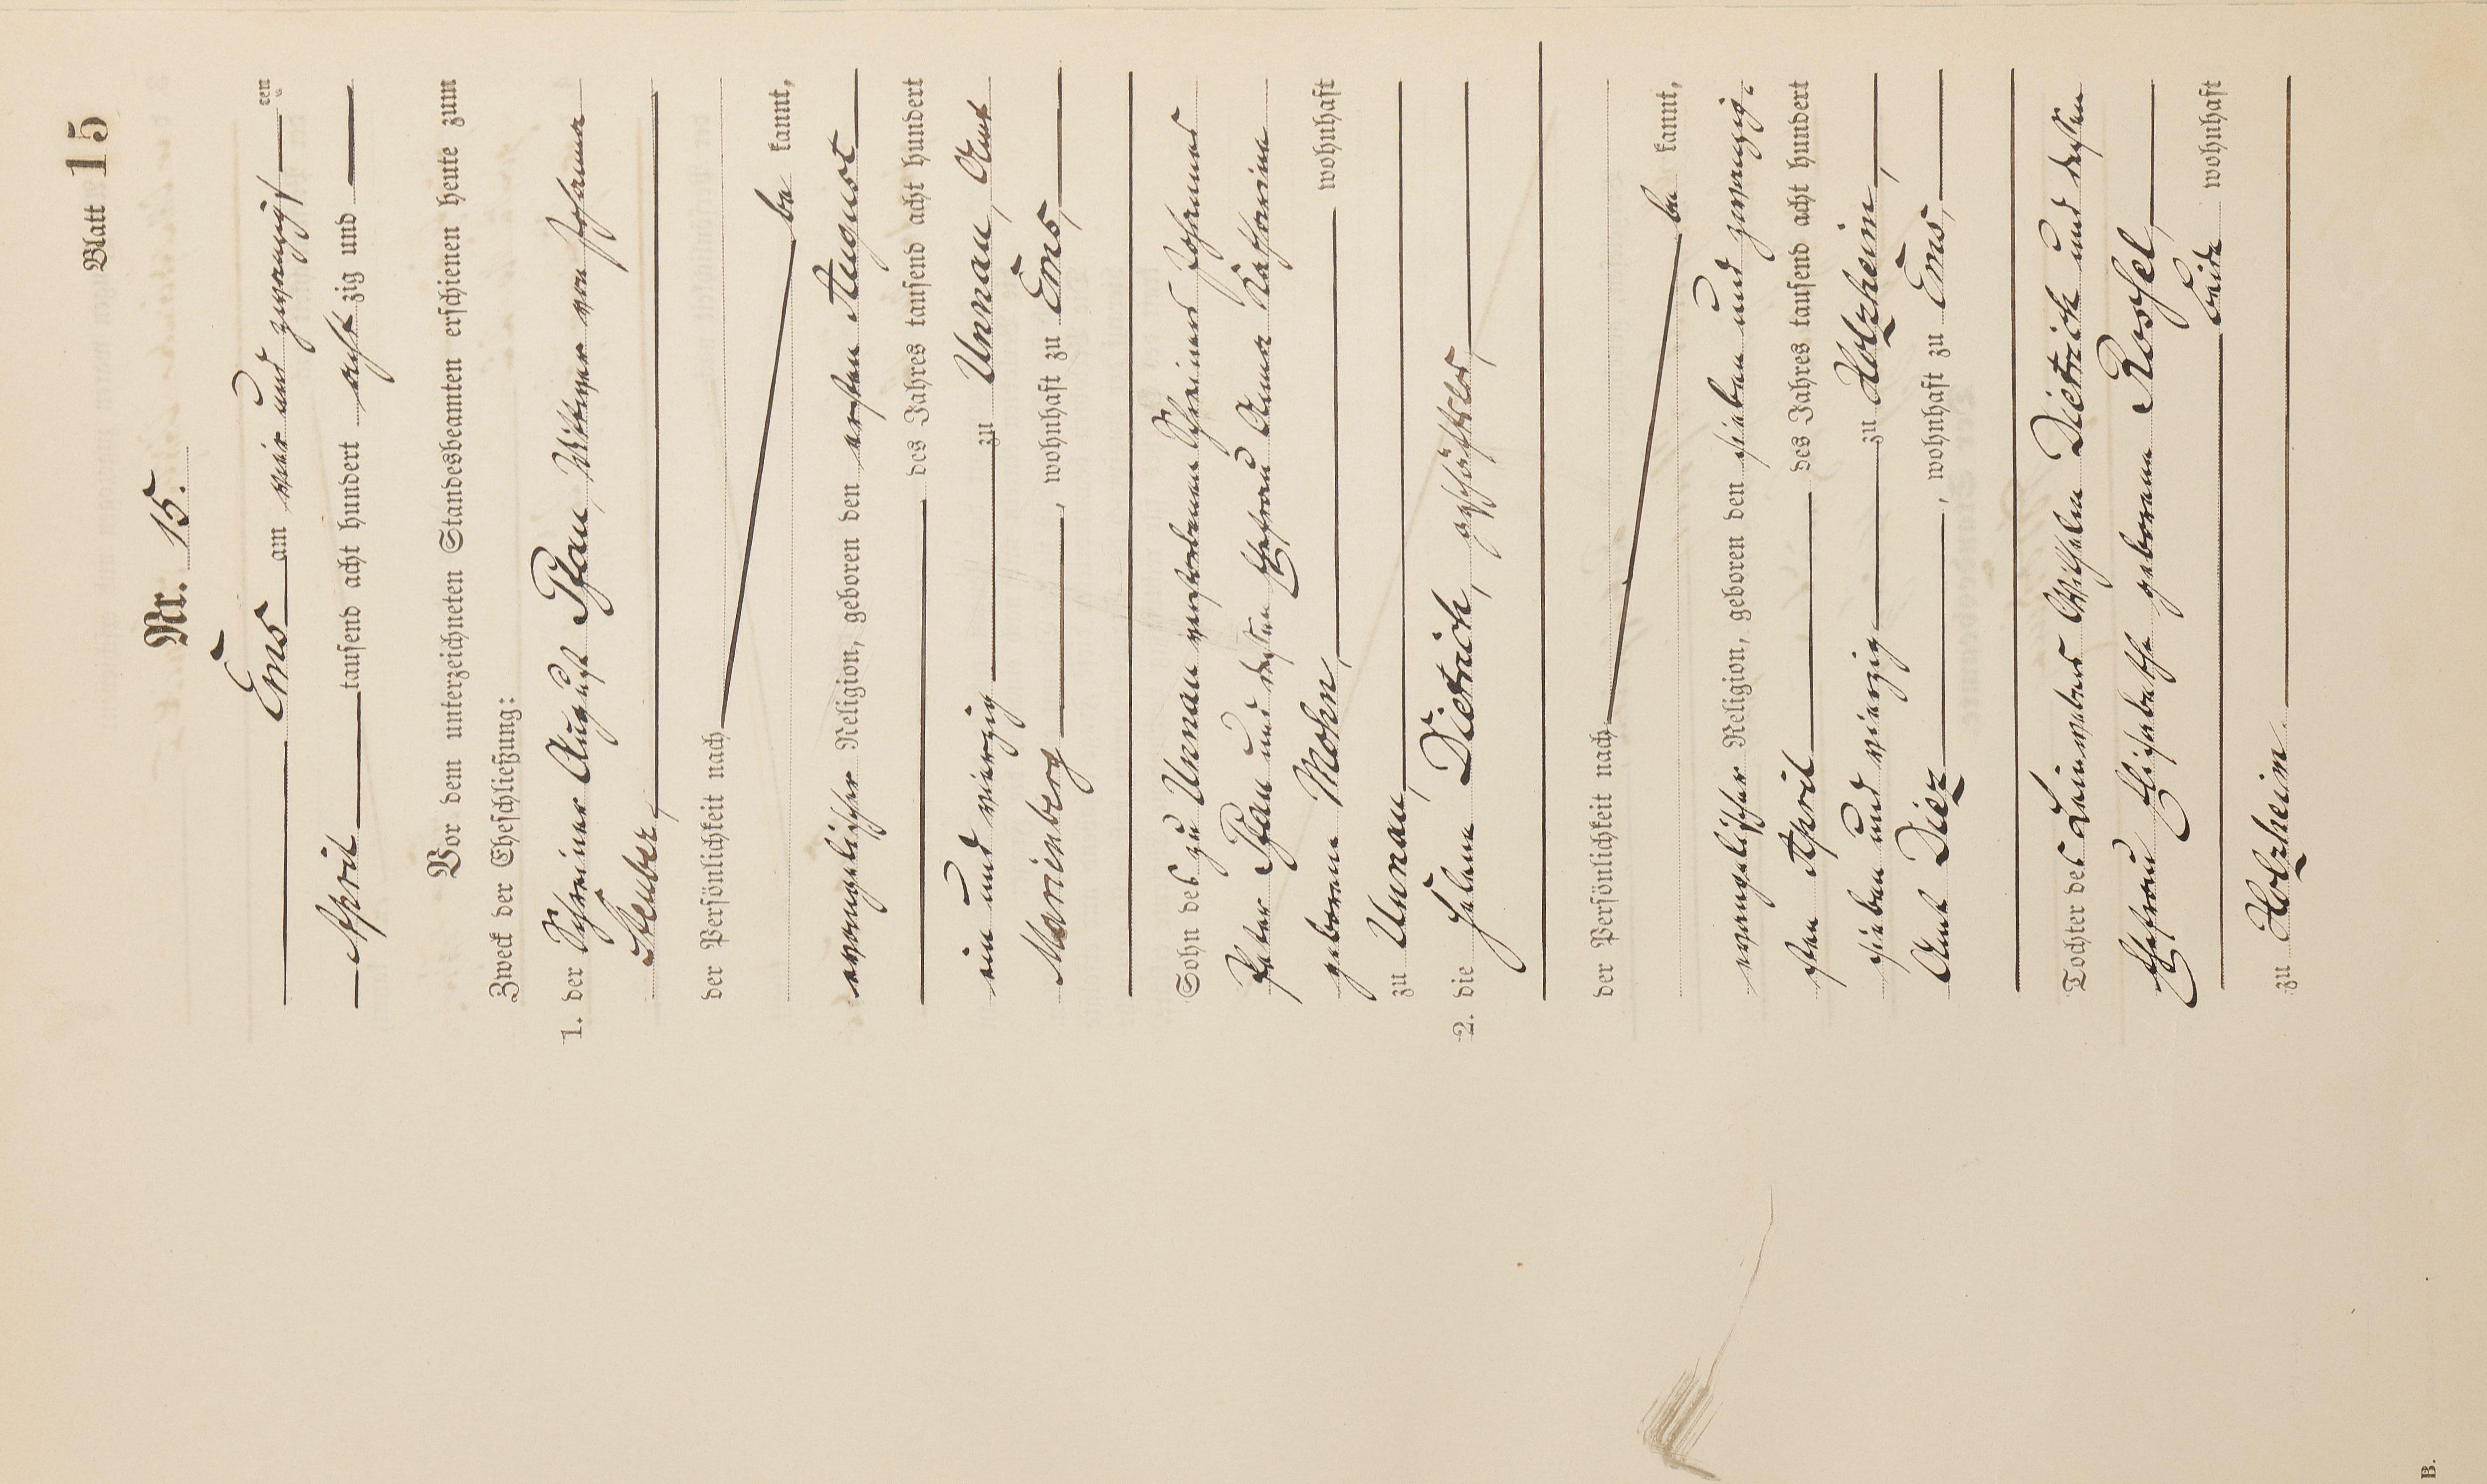 Blatt 15
Nr. 15.
Ems am vier und zwanzigs ten
April tausend acht hundert acht zig und
Vor dem unterzeichneten Standesbeamten erschienen heute zum
Zweck der Eheschließung:
1. der Schreiner August Pfau, Wittwer von Johanna
Steuber,
der Persönlichkeit nach
be kannt,
evangelischer Religion, geboren den ersten August
des Jahres tausend acht hundert
ein und vierzig zu Unnau, Amt
Marienberg, wohnhaft zu Ems,
Sohn des zu Unnau verstorbenen Schreiners Johannes
Peter Pfau und dessen Ehefrau Anna Katharina
geborene Mohn, wohnhaft
zu Unnau,
2. die Helene Dietrich, geschäftslos,
der Persönlichkeit nach
be kannt,
evangelischer Religion, geboren den sieben und zwanzig-
sten April des Jahres tausend acht hundert
sieben und vierzig zu Holzheim,
Amt Diez, wohnhaft zu Ems,
Tochter des Leinwebers Wilhelm Dietrich und dessen
Ehefrau Elisabethe geborene Rossel,
beide wohnhaft
zu Holzheim
B.